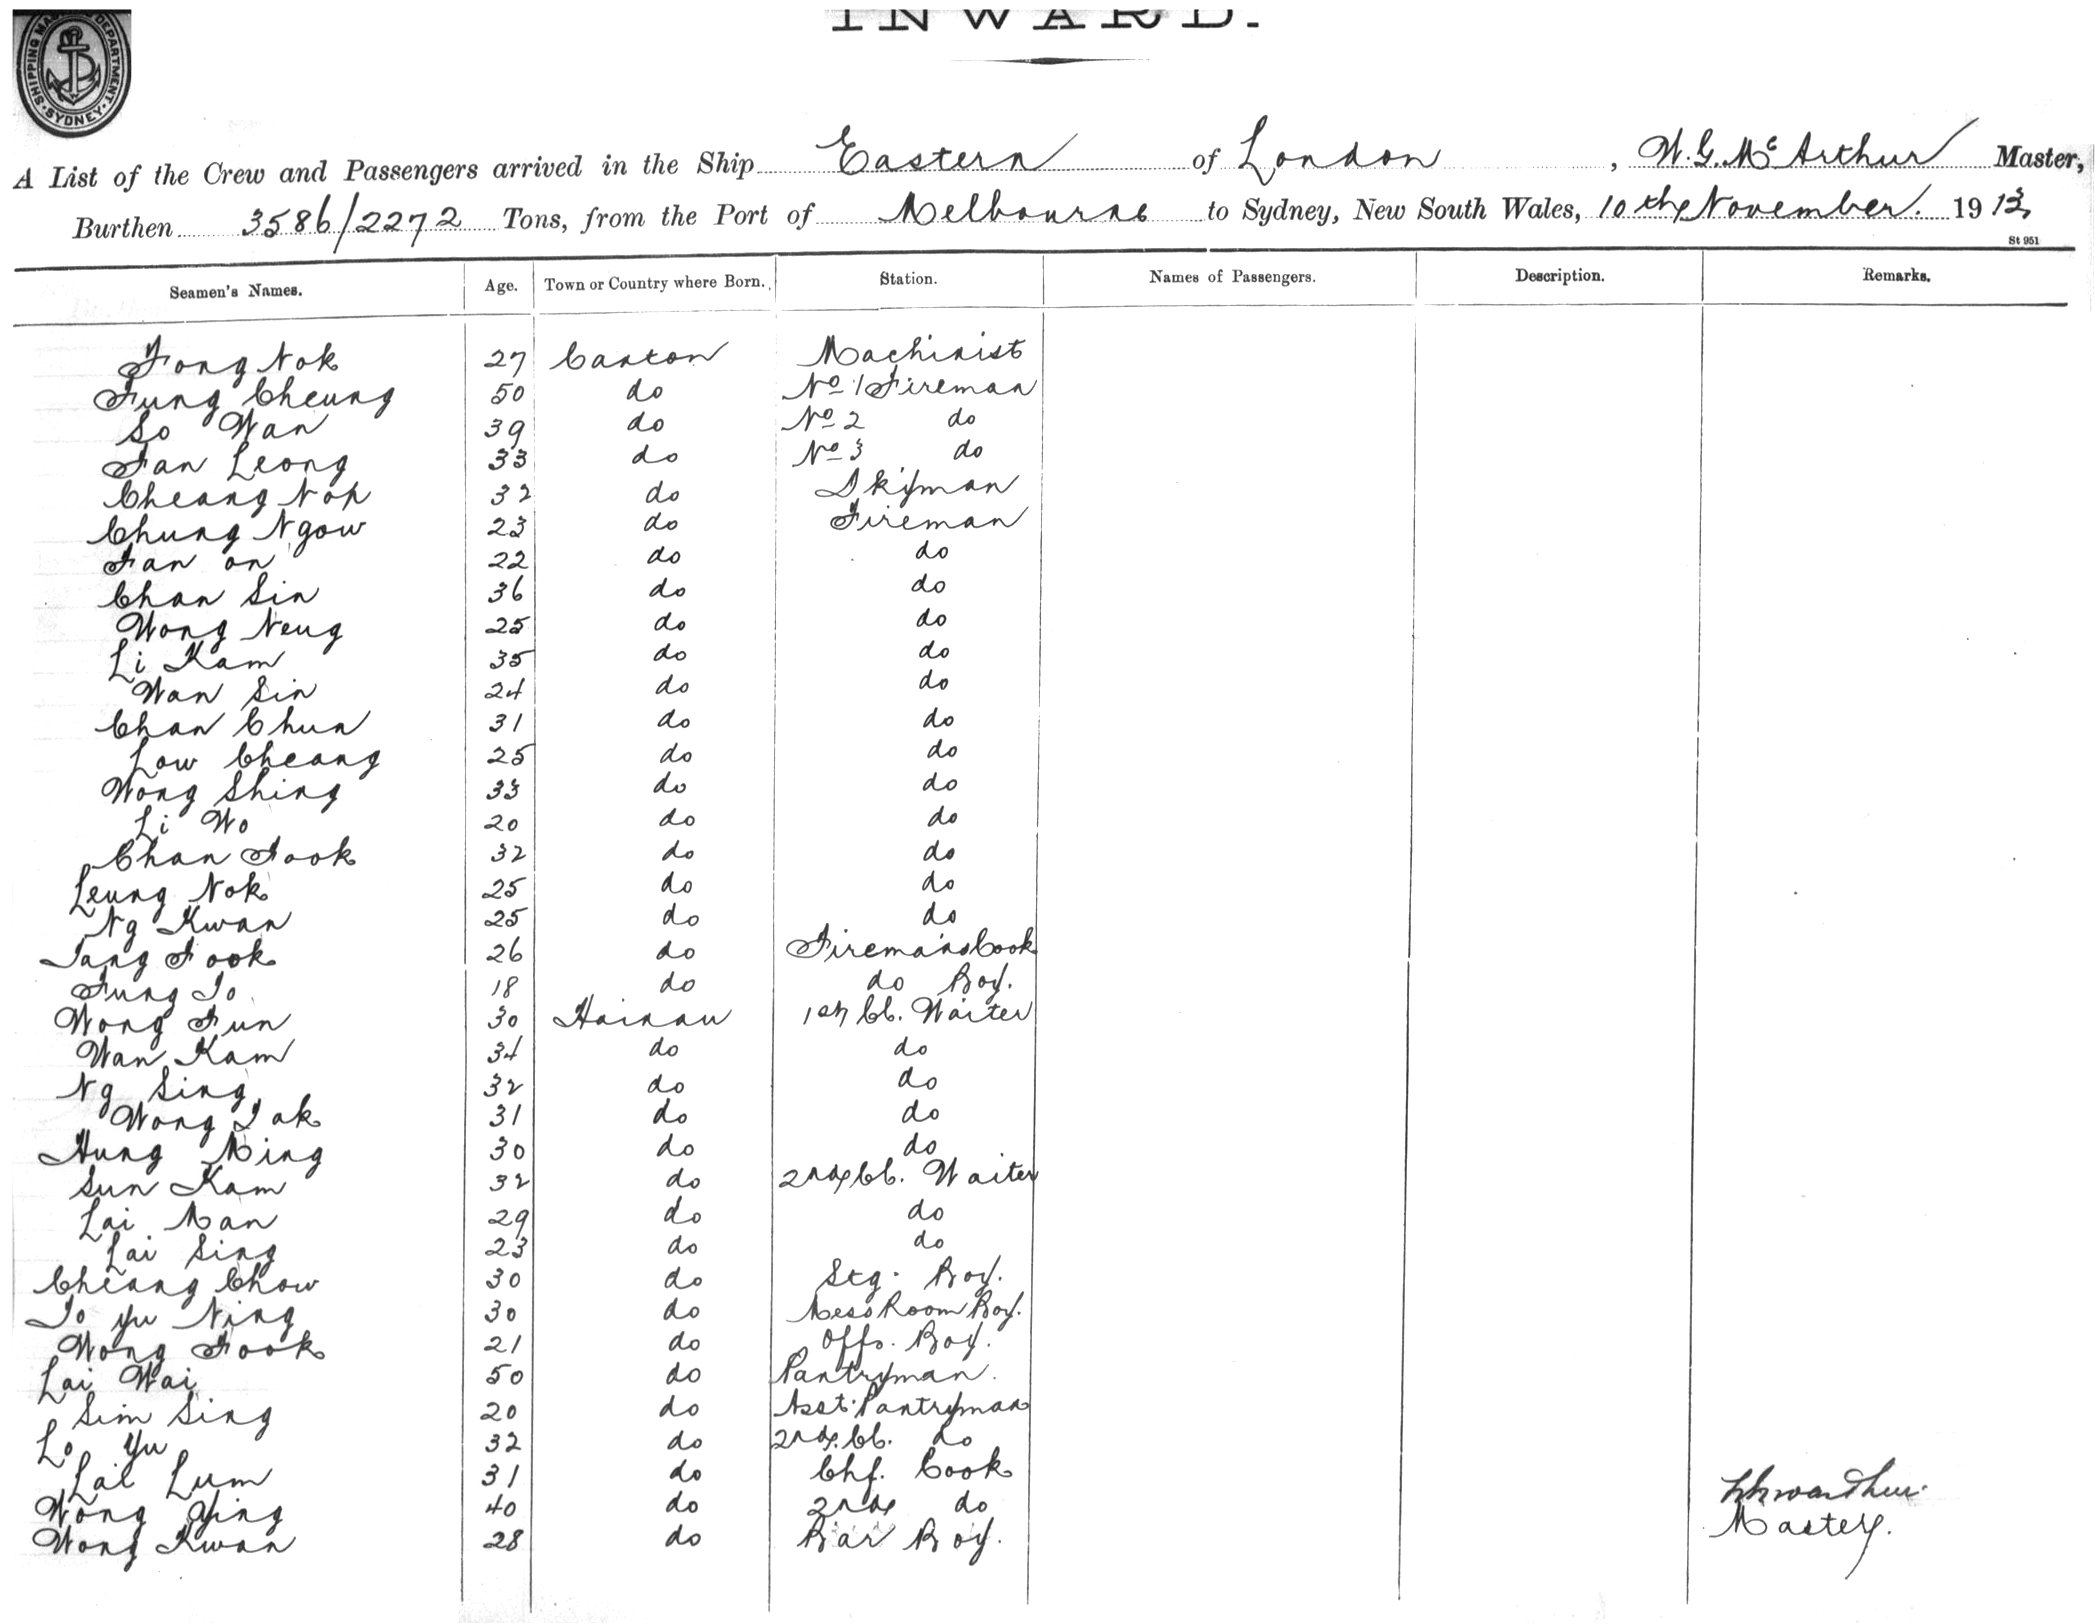 INWARD.
SHIPPING MA DEPARTMENT SYDNEY
A List of the Crew and Passengers arrived in the Ship Eastern of London, W. G. McArthur Master,
Burthen 3586/2272 Tons, from the Port of Melbourne to Sydney, New South Wales, 10th November. 1913,
St 951
Seamen's Names. Age. Town or Country where Born. Station. Names of Passengers. Description. Remarks.
Fong Nok 27 Canton Machinist
Fung Cheung 50 do No 1 Fireman
So Wan 39 do No 2 do
Fan Leong 33 do No 3 do
Cheang Nop 32 do Dkyman
Chung Ngow 23 do Fireman
Fan on 22 do do
Chan Sin 36 do do
Wong Neug 25 do do
Li Kam 35 do do
Wan Sin 24 do do
Chan Chun 31 do do
Low Cheang 25 do do
Wong Shing 33 do do
Li Wo 20 do do
Chan Fook 32 do do
Leung Nok 25 do do
Ng Kwan 25 do do
Tang Fook 26 do Fireman's Cook
Fung To 18 do do Boy.
Wong Fun 30 Hainau 1st Cl. Waiter
Wan Kam 34 do do
Ng Sing 32 do do
Wong Tak 31 do do
Hung Ming 30 do do
Sun Kam 32 do 2nd Cl. Waiter
Lai Man 29 do do
Lai Sing 23 do do
Cheang Chow 30 do Stg. Boy.
To Yu Ning 30 do Mess Room Boy.
Wong Fook 21 do Offs. Boy.
Lai Wai 50 do Pantryman.
Sim Sing 20 do Asst. Pantryman
Lo Yu 32 do 2nd. Cl. do
Lai Lum 31 do Chf. Cook
Wong Ying 40 do 2nd do
Wong Kwan 28 do Bar Boy.
Master.